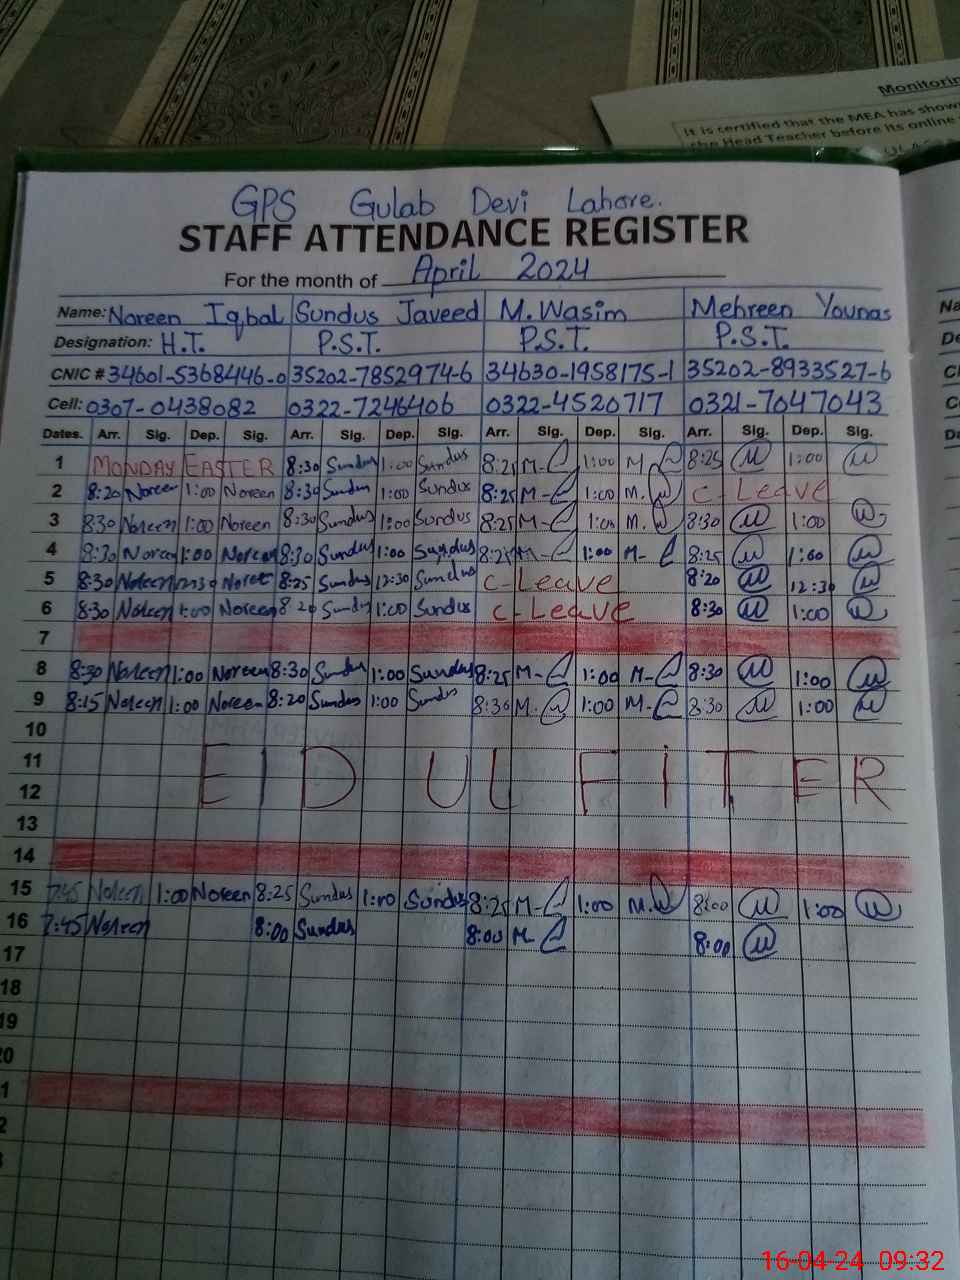 Monitorin
It is certified that the MEA has show
the Head Teacher before its online
GPS Gulab Devi Lahore.
STAFF ATTENDANCE REGISTER
For the month of April 2024
Name: Noreen Iqbal Sundus Javeed M. Wasim Mehreen Younas
Designation: H.T. P.S.T. P.S.T. P.S.T.
CNIC # 34601-5368446-0 35202-7852974-6 34630-1958175-1 35202-8933527-6
Cell: 0307-0438082 0322-7246406 0322-4520717 0321-7047043
Dates. Arr. Sig. Dep. Sig. Arr. Sig. Dep. Sig. Arr. Sig. Dep. Sig. Arr. Sig. Dep. Sig.
1 MONDAY EASTER 8:30 Sundus 1:00 Sundus 8:25 M- 1:00 M 8:25 1:00
2 8:20 Noreen 1:00 Noreen 8:30 Sundus 1:00 Sundus 8:25 M- 1:00 M. C-Leave
3 8:30 Noreen 1:00 Noreen 8:30 Sundus 1:00 Sundus 8:25 M- 1:00 M. 8:30 1:00
4 8:30 Noreen 1:00 Noreen 8:30 Sundus 1:00 Sundus 8:25 M- 1:00 M- 8:25 1:00
5 8:30 Noreen 12:30 Noreen 8:25 Sundus 12:30 Sundus C-Leave 8:20 12:30
6 8:30 Noreen 1:00 Noreen 8:20 Sundus 1:00 Sundus C-Leave 8:30 1:00
7
8 8:30 Noreen 1:00 Noreen 8:30 Sundus 1:00 Sundus 8:25 M- 1:00 M- 8:30 1:00
9 8:15 Noreen 1:00 Noreen 8:20 Sundus 1:00 Sundus 8:30 M- 1:00 M- 8:30 1:00
10
11 EID UL FITER
12
13
14
15 7:45 Noreen 1:00 Noreen 8:25 Sundus 1:00 Sundus 8:25 M- 1:00 M. 8:00 1:00
16 7:45 Noreen 8:00 Sundus 8:00 M- 8:00
17
18
19
20
1
2
16-04-24 09:32